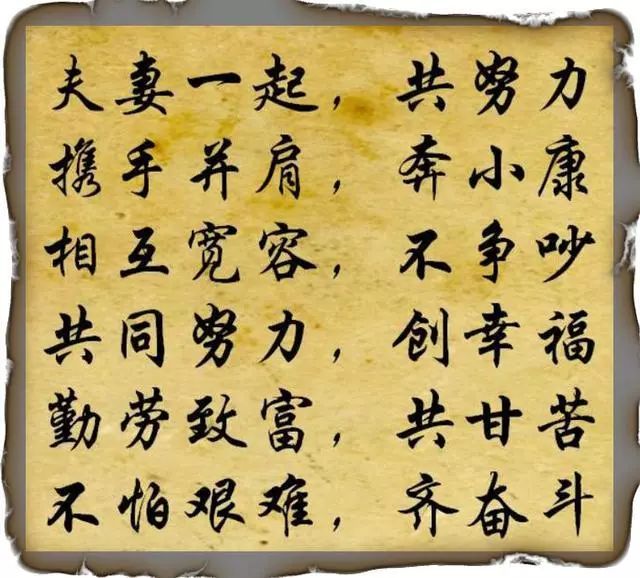 夫妻一起，共努力
携手并肩，奔小康
相互宽容，不争吵
共同努力，创幸福
勤劳致富，共甘苦
不怕艰难，齐奋斗